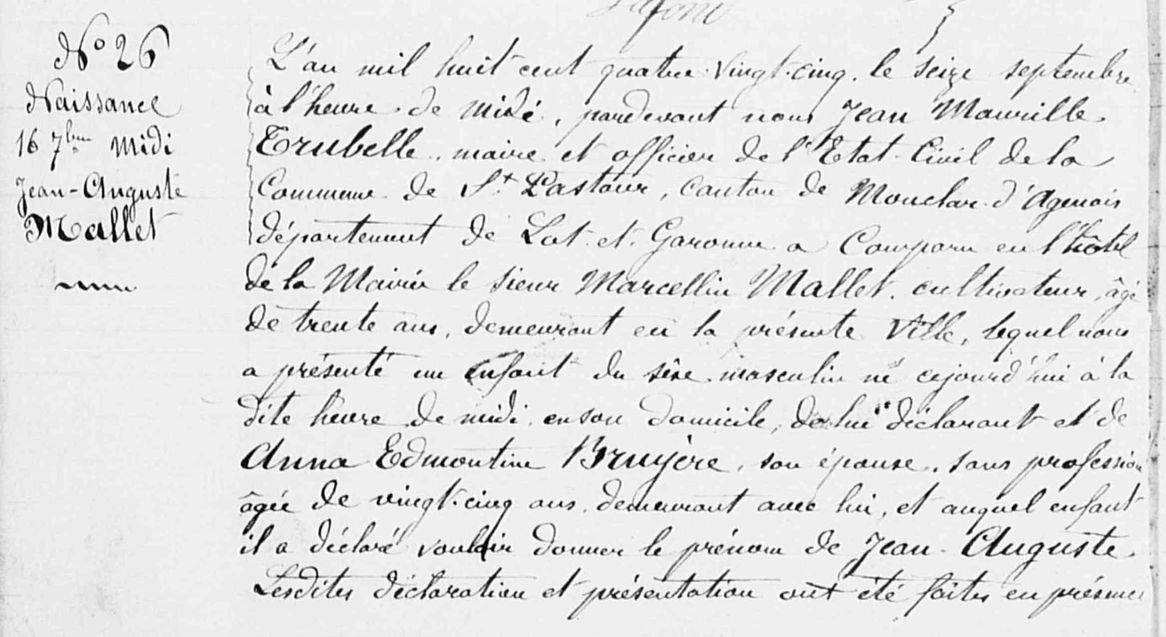 Nº 26
Naissance
16 7bre Midi
Jean-Auguste
Mallet
L'an mil huit cent quatre-vingt-cinq, le seize septembre
à l'heure de midi, pardevant nous Jean Maurille
Trubelle, maire et officier de l'Etat-Civil de la
Commune de St Pastour, canton de Monclar d'Agenais
département de Lot-et-Garonne a comparu en l'hôtel
de la Mairie le sieur Marcellin Mallet, cultivateur, âgé
de trente ans, demeurant en la présente Ville, lequel nous
a présenté un enfant du sexe masculin né cejourd'hui à la
dite heure de midi, en son domicile, de lui déclarant et de
Anna Edmontine Bruyère, son épouse, sans profession
âgée de vingt-cinq ans, demeurant avec lui, et auquel enfant
il a déclaré vouloir donner le prénom de Jean-Auguste.
Lesdites déclaration et présentation ont été faites en présence